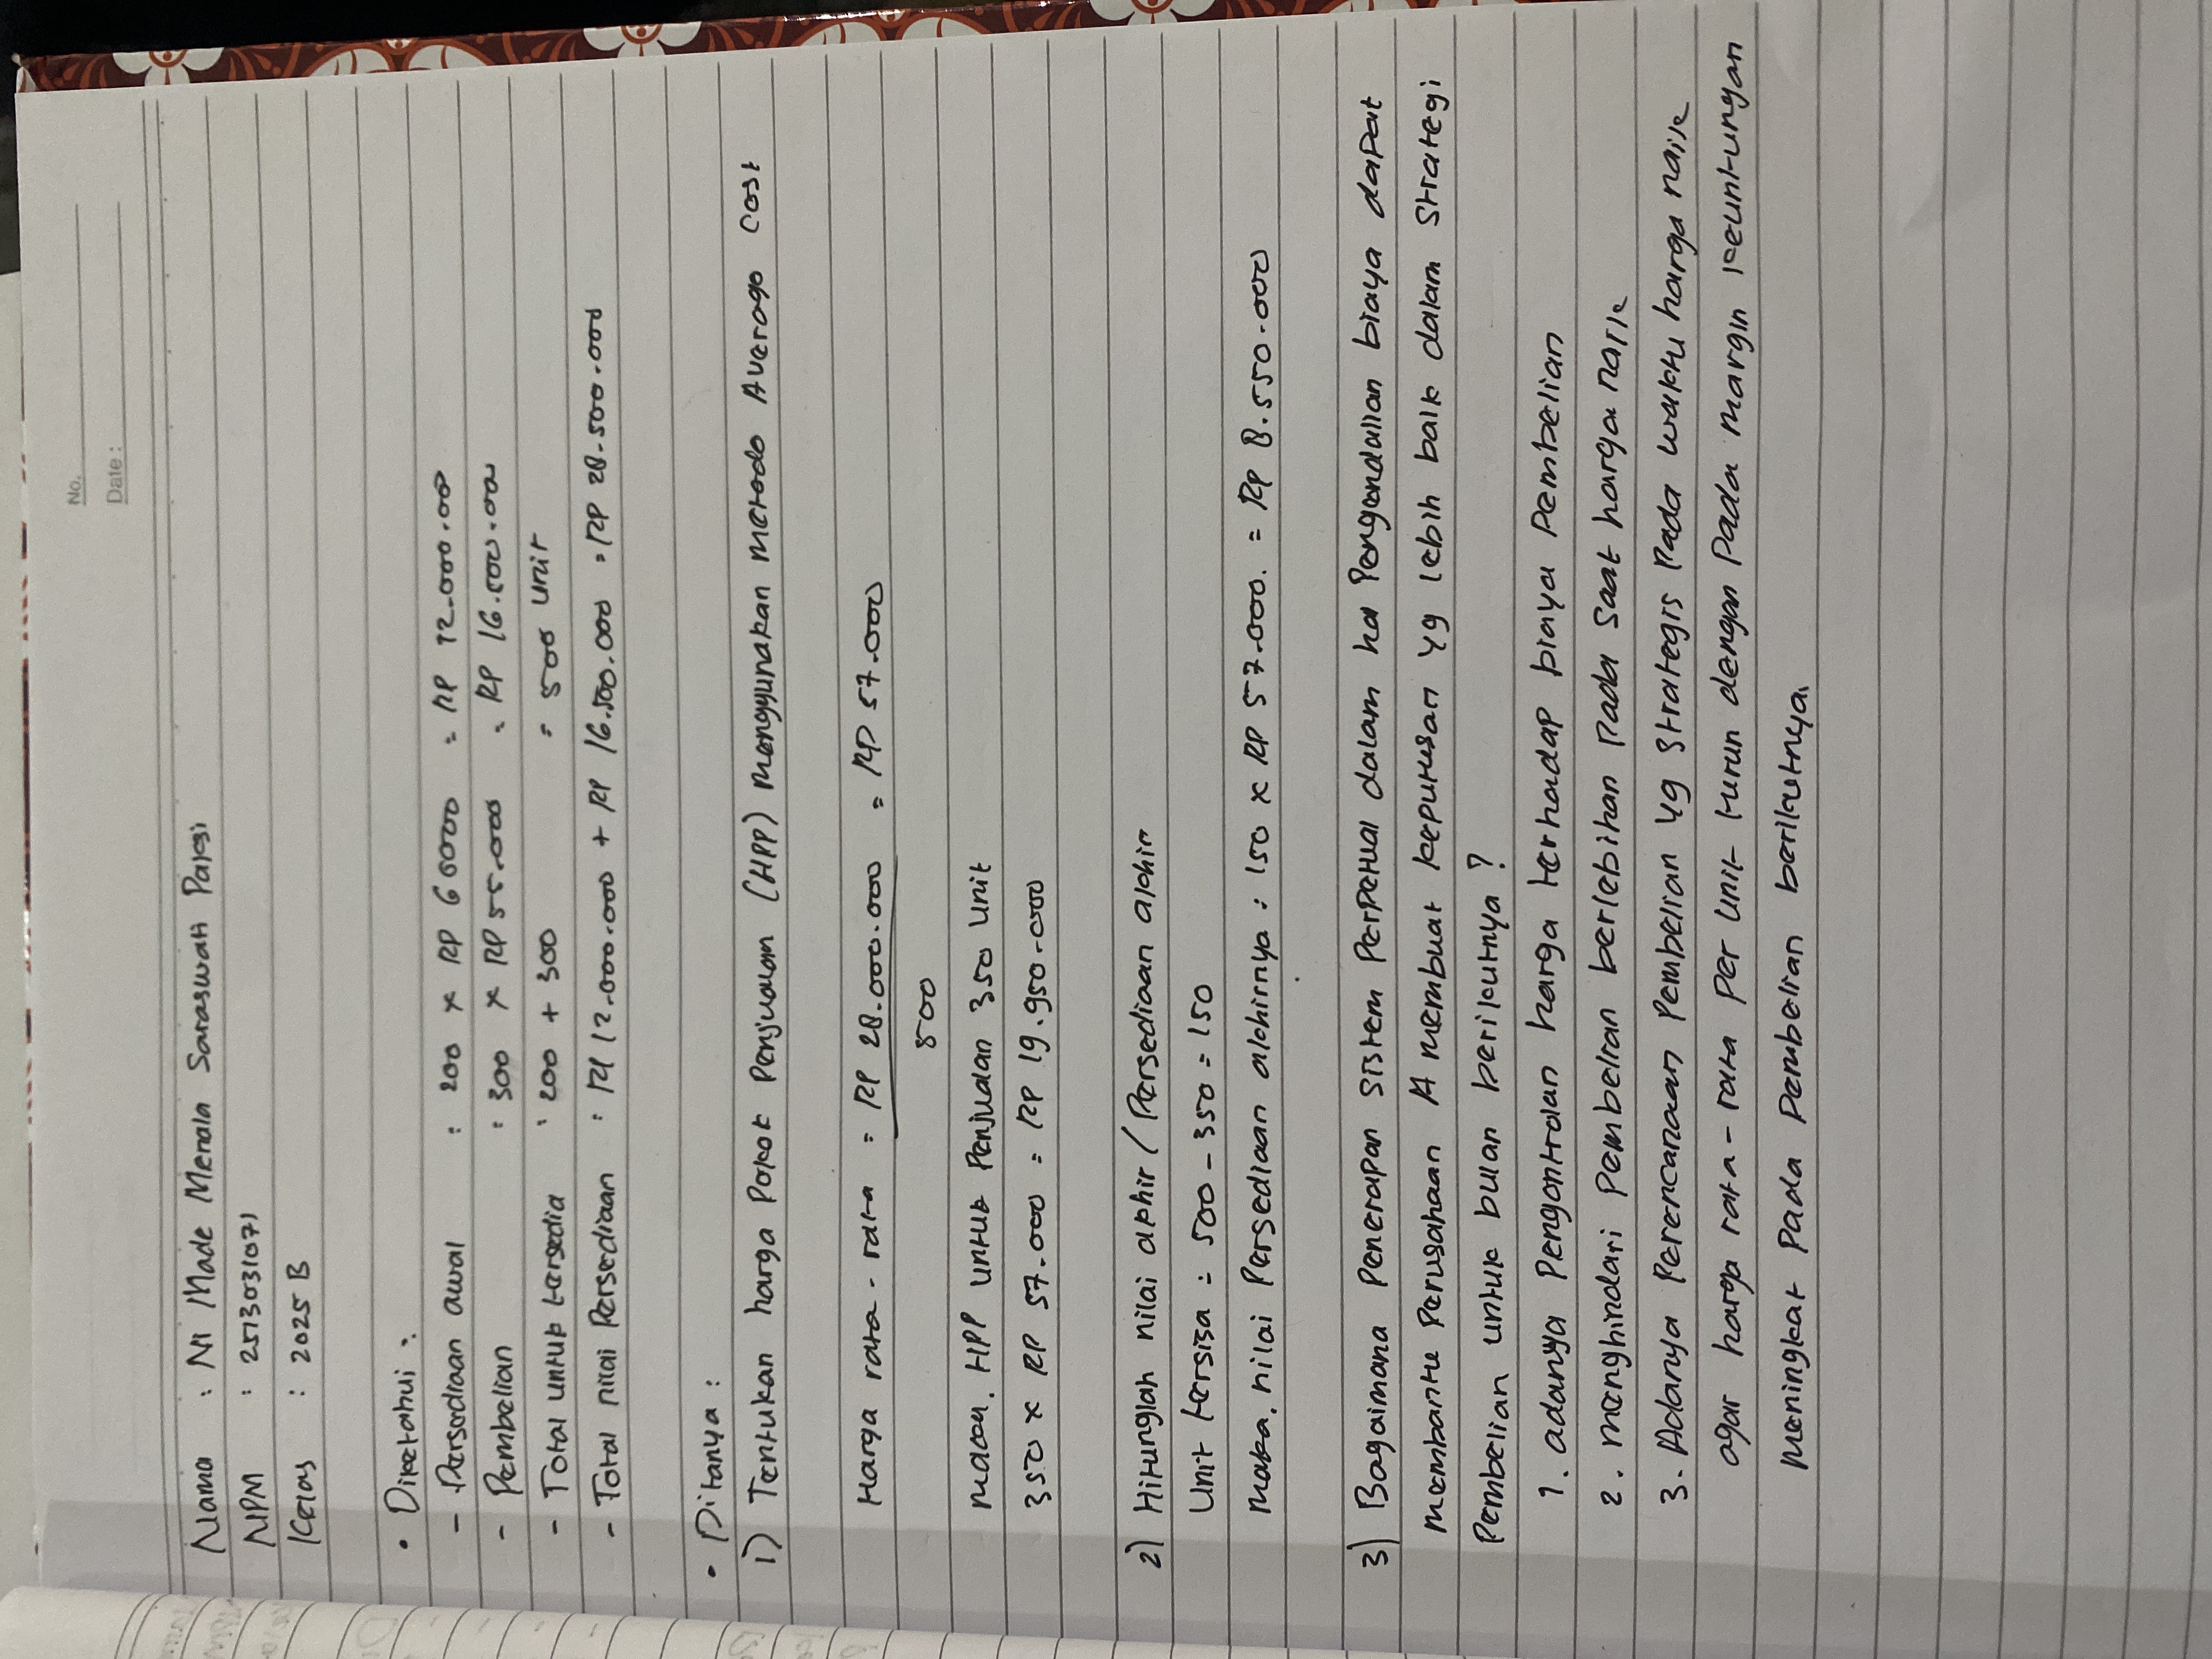 No.
Date :
Nama : Ni Made Merala Saraswati Pargi
NPM : 2513031071
Kelas : 2025 B
• Diketahui :
- Persediaan awal : 200 x RP 60000 = RP 12.000.00
- Pembelian : 300 x RP 55.000 = RP 16.500.00
- Total untuk tersedia : 200 + 300 = 500 unit
- Total nilai Persediaan : RP 12.000.000 + RP 16.500.000 = RP 28.500.000
• Ditanya :
1) Tentukan harga Pokok Penjualan (HPP) menggunakan metode Average cost
Harga rata-rata = RP 28.000.000 = RP 57.000
500
maka, HPP untuk Penjualan 350 unit
350 x RP 57.000 = RP 19.950.000
2) Hitunglah nilai akhir / Persediaan akhir
Unit tersisa = 500 - 350 = 150
maka, nilai Persediaan akhirnya : 150 x RP 57.000. = RP 8.550.000
3) Bagaimana Penerapan sistem Perpetual dalam hal Pengendalian biaya dapat
membantu Perusahaan A membuat keputusan yg lebih baik dalam strategi
Pembelian untuk bulan berikutnya ?
1. adanya Pengontrolan harga terhadap biaya Pembelian
2. menghindari Pembelian berlebihan Pada saat harga naik
3. Adanya Perencanaan Pembelian yg strategis Pada waktu harga naik
agar harga rata-rata Per unit turun dengan Pada margin keuntungan
meningkat Pada Pembelian berikutnya.